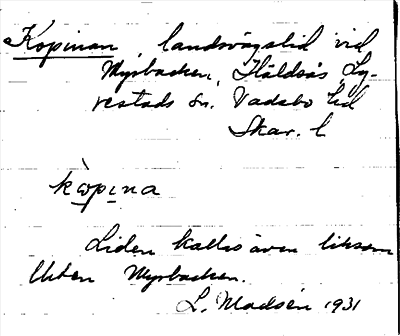 Kopinan, landsvägslid vid
Myrbacken, Häldsås, Ly-
restads sn. Vadsbo hd
Skar. l
kωpιna
Liden kallas även liksom
Myrbacken.
L. Modsén 1931